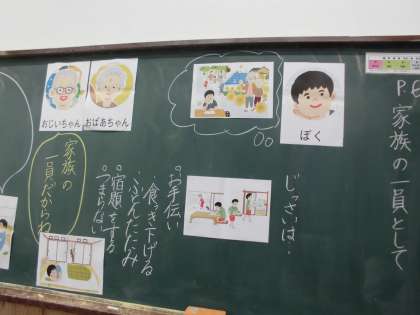 P6 家族の一員として
ぼく
じっさいは・
お手伝い
・食き下げる
・ふとんたたみ
宿題をする
つまらない
おじいちゃん
おばあちゃん
家族の
一員だからね